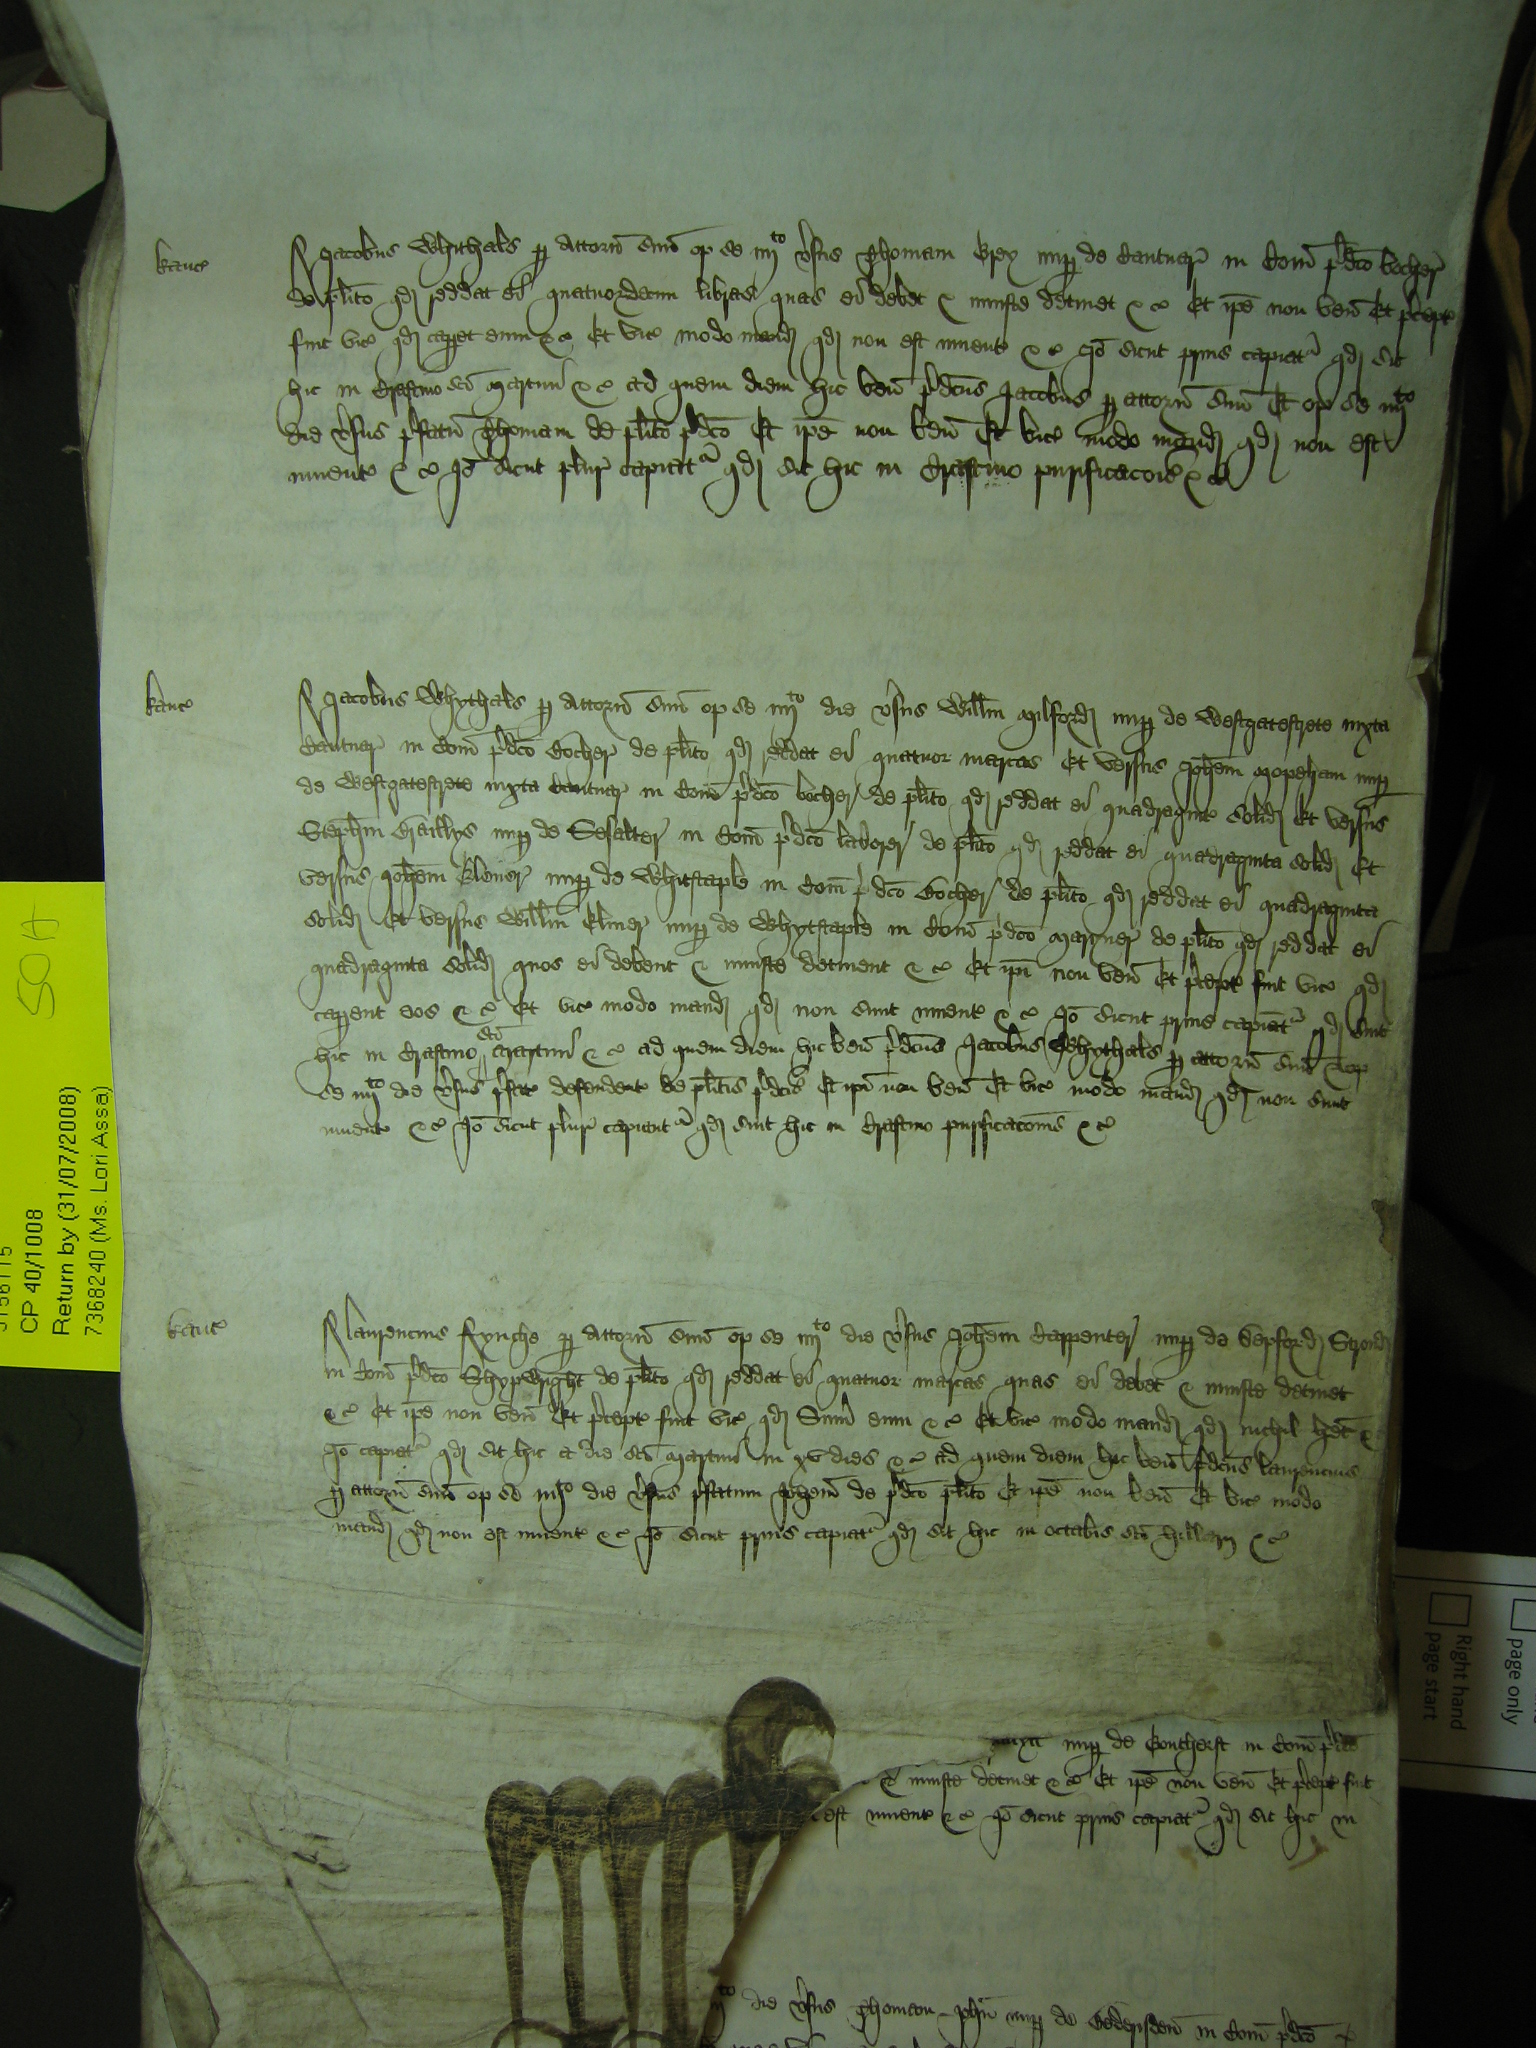 Kanc
Jacobus Whithals p attorn suu op se iiijto v'sus Thomam Grey nup de Cantuar in Com p'dco bocher
de pl'ito qd reddat ei quatuordecim libras quas ei debet & iniuste detinet &c Et ip'e non ven Et p'cept
fuit vic qd cap'et eum &c Et vic modo mand qd non est invent &c Io sicut prius capiat' qd sit
hic in Crastino sci Martini &c Ad quem diem hic ven p'dcus Jacobus p attorn suu Et op se iiijto
die v'sus p'fatu Thomam de pl'ito p'dco Et ip'e non ven Et vic modo mand qd non est
invent &c Io sicut plur' capiat' qd sit hic in Crastino purificacois &c
Kanc
Jacobus Whythals p attorn suu op se iiijto die v'sus Will'm Milford nup de Westgatestrete iuxta
Cantuar in Com p'dco Bocher de pl'ito qd reddat ei quatuor marcas Et versus Joh'em Mopeham nup
de Westgatestrete iuxta Cantuar in Com p'dco bocher de pl'ito qd reddat ei quadragint solid Et versus
Steph'm Baillys nup de Sesalter in Com p'dco laborer de pl'ito qd reddat ei quadraginta solid Et
versus Joh'em nup de Whitstaple in Com p'dco Bocher de pl'ito qd reddat ei quadraginta
solid Et versus Will'm Elmer nup de Whytstaple in Com p'dco Maryner de pl'ito qd reddat ei
quadraginta solid quos ei debent & iniuste detinent &c Et ip'i non ven Et p'cept fuit vic qd
cap'ent eos &c Et vic modo mand qd non sunt invent &c Io sicut prius capiant' qd sint
hic in Crastino sci Martini &c Ad quem diem hic ven p'dcus Jacobus Whythals p attorn suu & op
se iiijto die v'sus p'fat defendent de pl'itis p'dcis Et ip'i non ven Et vic modo mand qd non sunt
invent &c Io sicut plur' capiant' qd sint hic in Crastino purificacois &c
Kanc
Laurencius Fynche p attorn suu op se iiijto die v'sus Joh'em Carppenter nup de Depford Strond
in Com p'dco Shypwright de pl'ito qd reddat ei quatuor marcas quas ei debet & iniuste detinet
&c Et ip'e non ven Et p'cept fuit vic qd Sum' eum &c Et vic modo mand qd nichil h'et &c
Io capiat' qd sit hic a die sci Martini in xv dies &c Ad quem diem hic ven p'dcus Laurencius
p attorn suu op se iiijto die v'sus p'fatum Joh'em de p'dco pl'ito Et ip'e non ven Et vic modo
mand qd non est invent &c Io sicut prius capiat' qd sit hic in octabis sci Hillarij &c
nup de Gontherst in Com p'dco
& iniuste detinet &c Et ip'e non ven Et p'cept fuit
est invent &c Io sicut prius capiat' qd sit hic in
to die v'sus Thomam John nup de Bederisden in Com p'dco
SOH
CP 40/1008
Return by (31/07/2008)
7368240 (Ms. Lori Assa)
page only
Right hand
page start